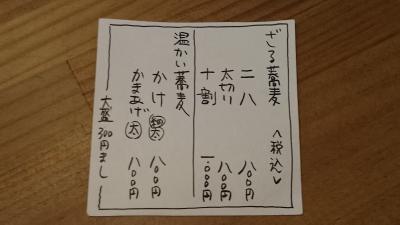 ざる蕎麦 〈税込〉
二八 八〇〇円
太切り 八〇〇円
十割 一、〇〇〇円
温かい蕎麦
かけ 細太 八〇〇円
かまあげ 太 八〇〇円
大盛300円まし